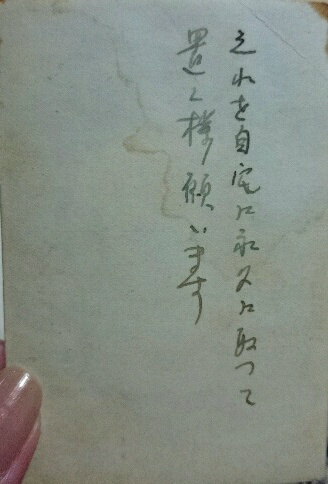 之れを自宅に永久に取つて
置く様願います